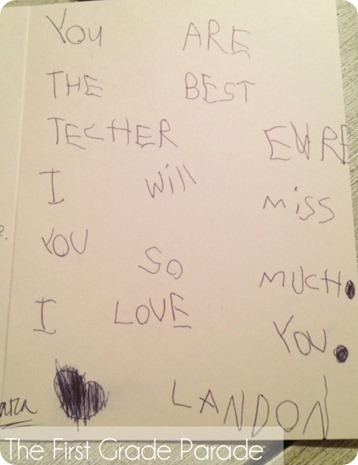 YOU ARE
THE BEST
TECHER EVRE
I Will miss
YOU SO MUCH.
I LOVE YOU.
LANDON
The First Grade Parade